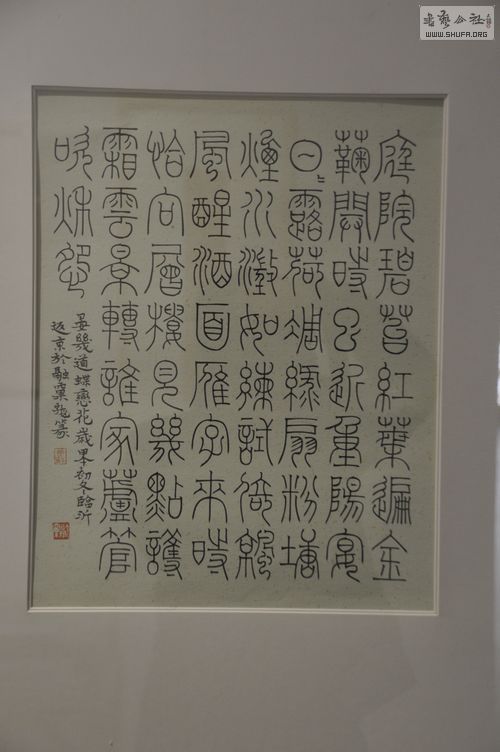 庭院碧苔紅葉遍金
鞠開時已近重陽宴
日〻露荷凋綠扇粉塘
煙水澂如練試倚
風醒酒面雁字來時
恰向層樓見幾點護
霜雲景轉誰家蘆管
吹秌怨
晏幾道蝶戀花歲初冬臨沂
返京於融篆
書藝公社
WWW.SHUFA.ORG